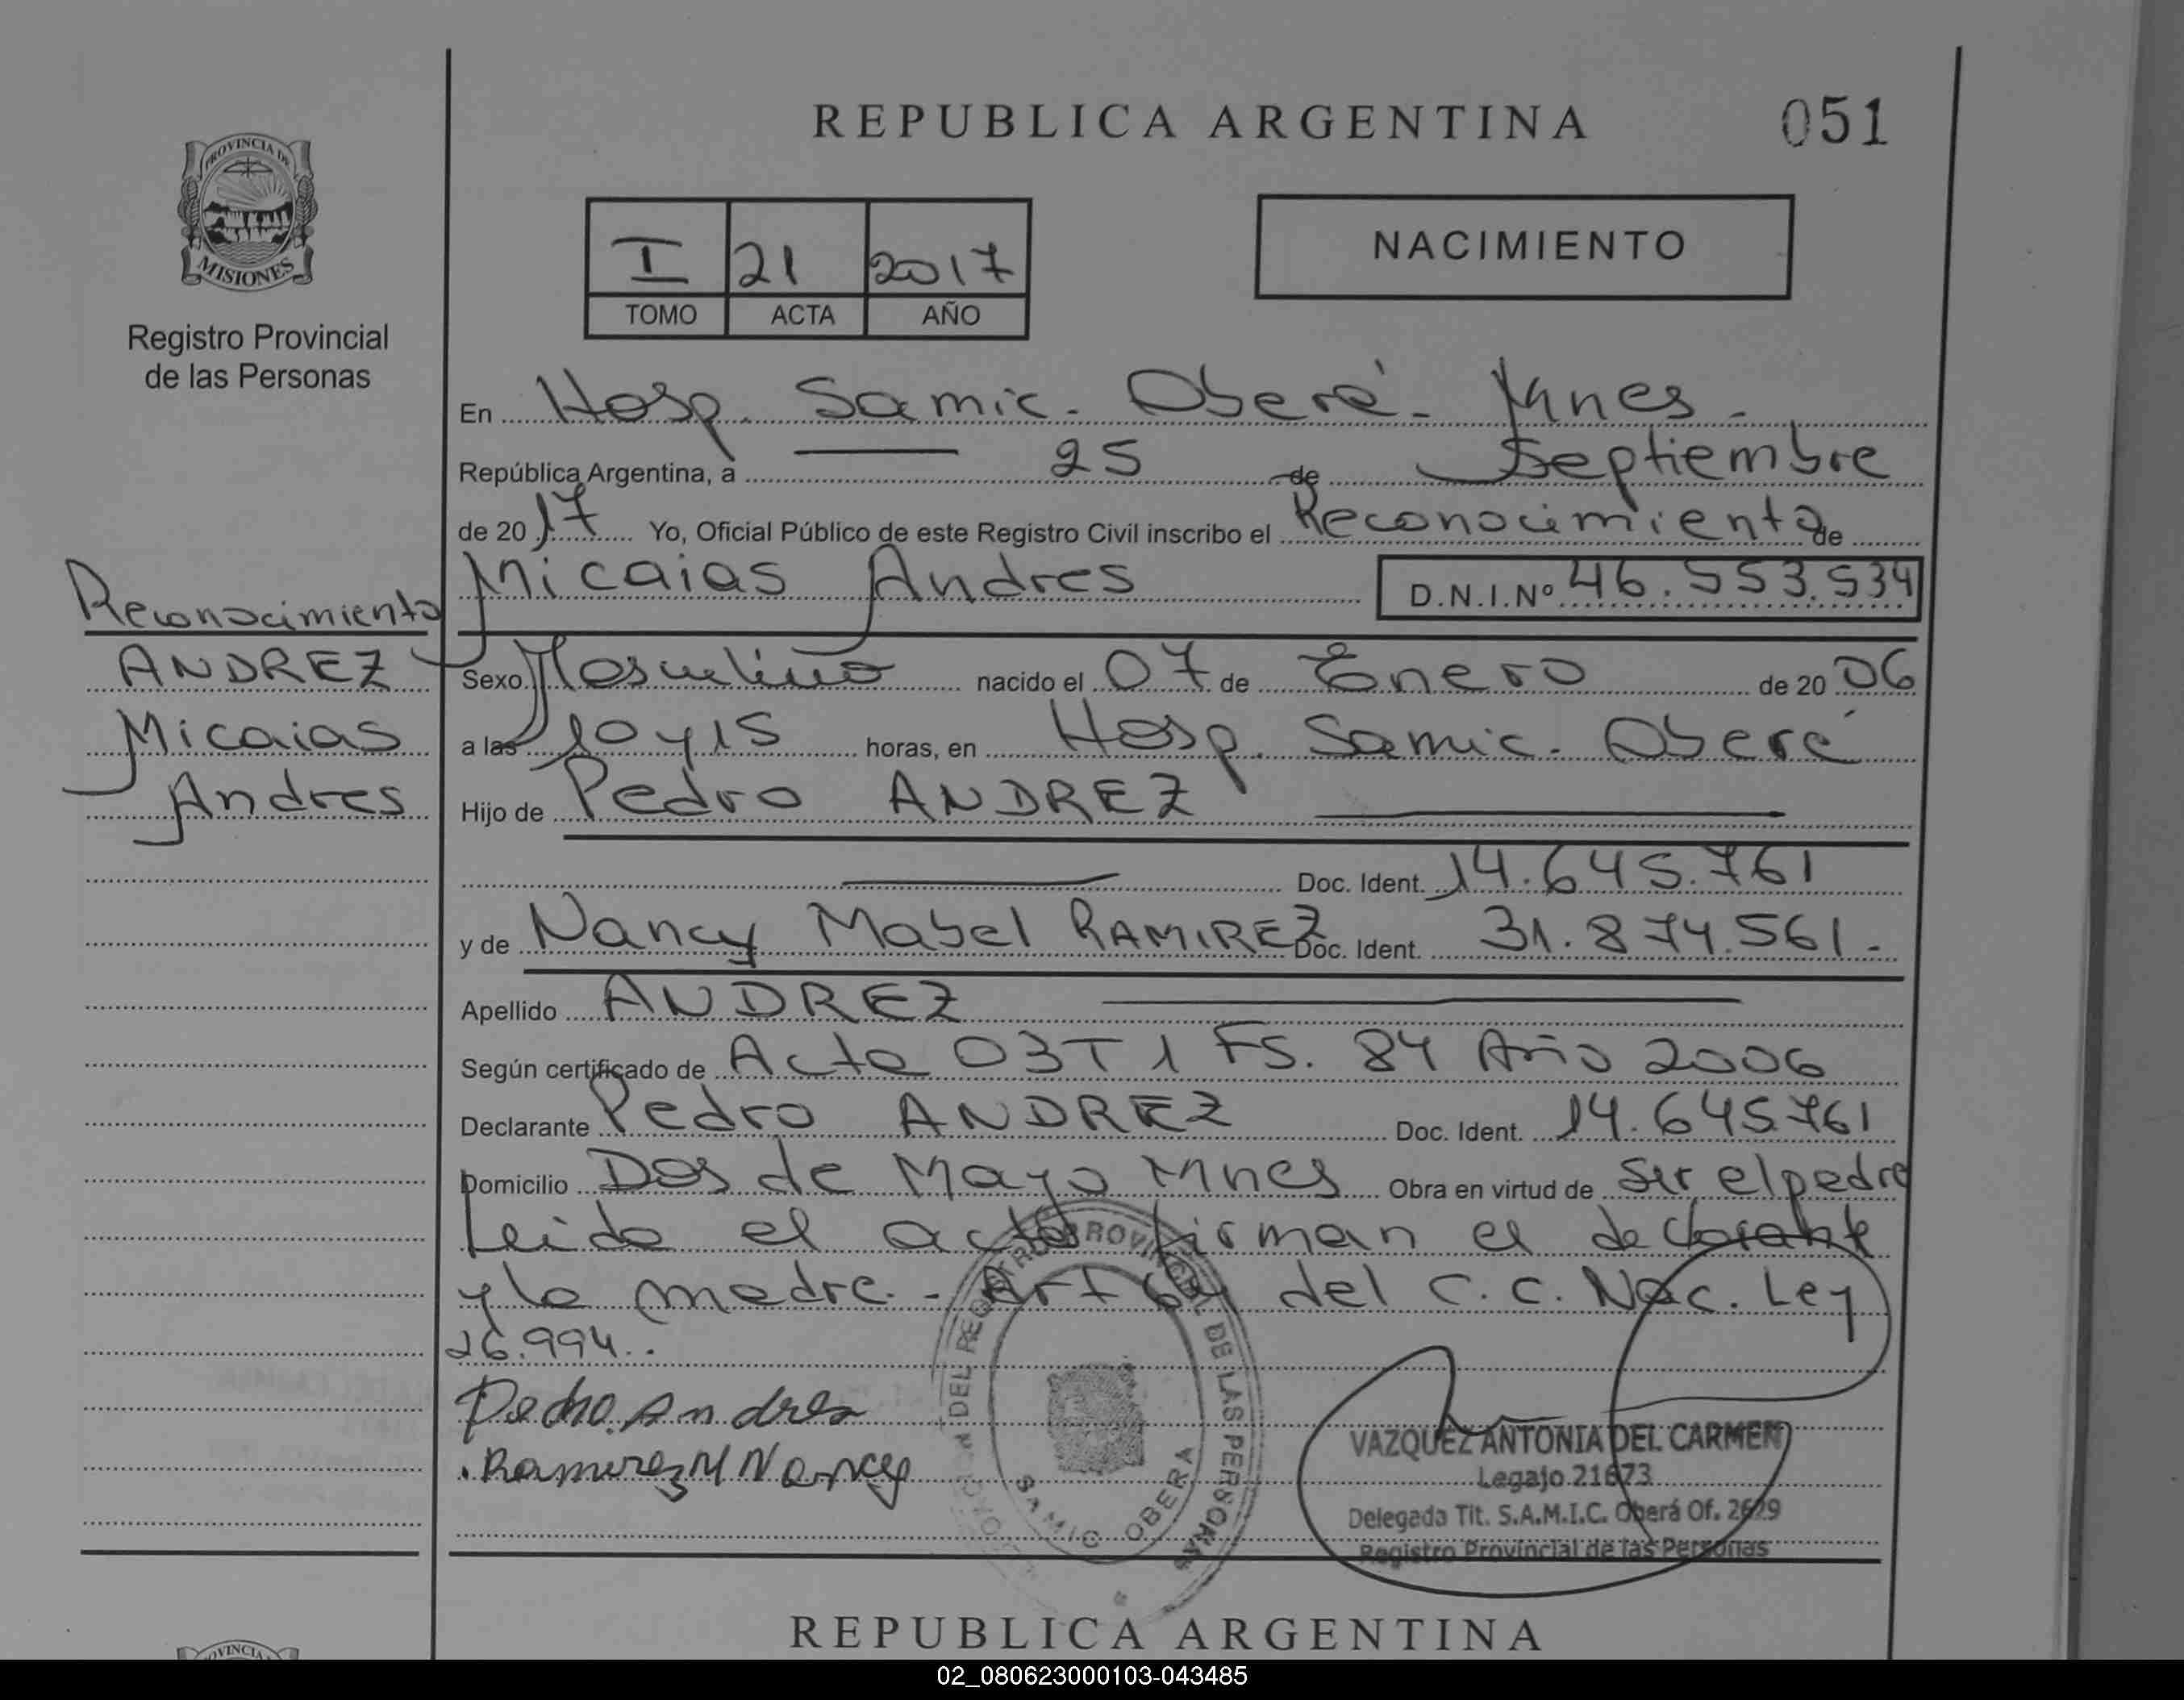 REPUBLICA ARGENTINA
051
PROVINCIA DE
MISIONES
Registro Provincial
de las Personas
I 21 2017
TOMO ACTA AÑO
NACIMIENTO
En Hosp. Samic. Oberá. Mnes.
República Argentina, a 25 de Septiembre
de 2017 Yo, Oficial Público de este Registro Civil inscribo el Reconocimiento de
Micaias Andres D.N.I.Nº 46.553.534
Reconocimiento
ANDREZ
Micaias
Andres
Sexo Masculino nacido el 07 de Enero de 2006
a las 10 y 15 horas, en Hosp. Samic. Oberá
Hijo de Pedro ANDREZ
Doc. Ident. 14.645.761
y de Nancy Mabel RAMIREZ Doc. Ident. 31.874.561.
Apellido ANDREZ
Según certificado de Acta 03 T 1 Fs. 84 Año 2006
Declarante Pedro ANDREZ Doc. Ident. 14.645.761
Domicilio Dos de Mayo Mnes Obra en virtud de ser el padre
Leida el acta firman el declarante
y la madre. Art 64 del C.C. Nac. Ley
26.994..
Pedro Andres
Ramirez M Nancy
DEL REGISTRO PROVINCIAL DE LAS PERSONAS
SAMIC OBERA
VAZQUEZ ANTONIA DEL CARMEN
Legajo 21673
Delegada Tit. S.A.M.I.C. Oberá Of. 2629
Registro Provincial de las Personas
REPUBLICA ARGENTINA
02_080623000103-043485